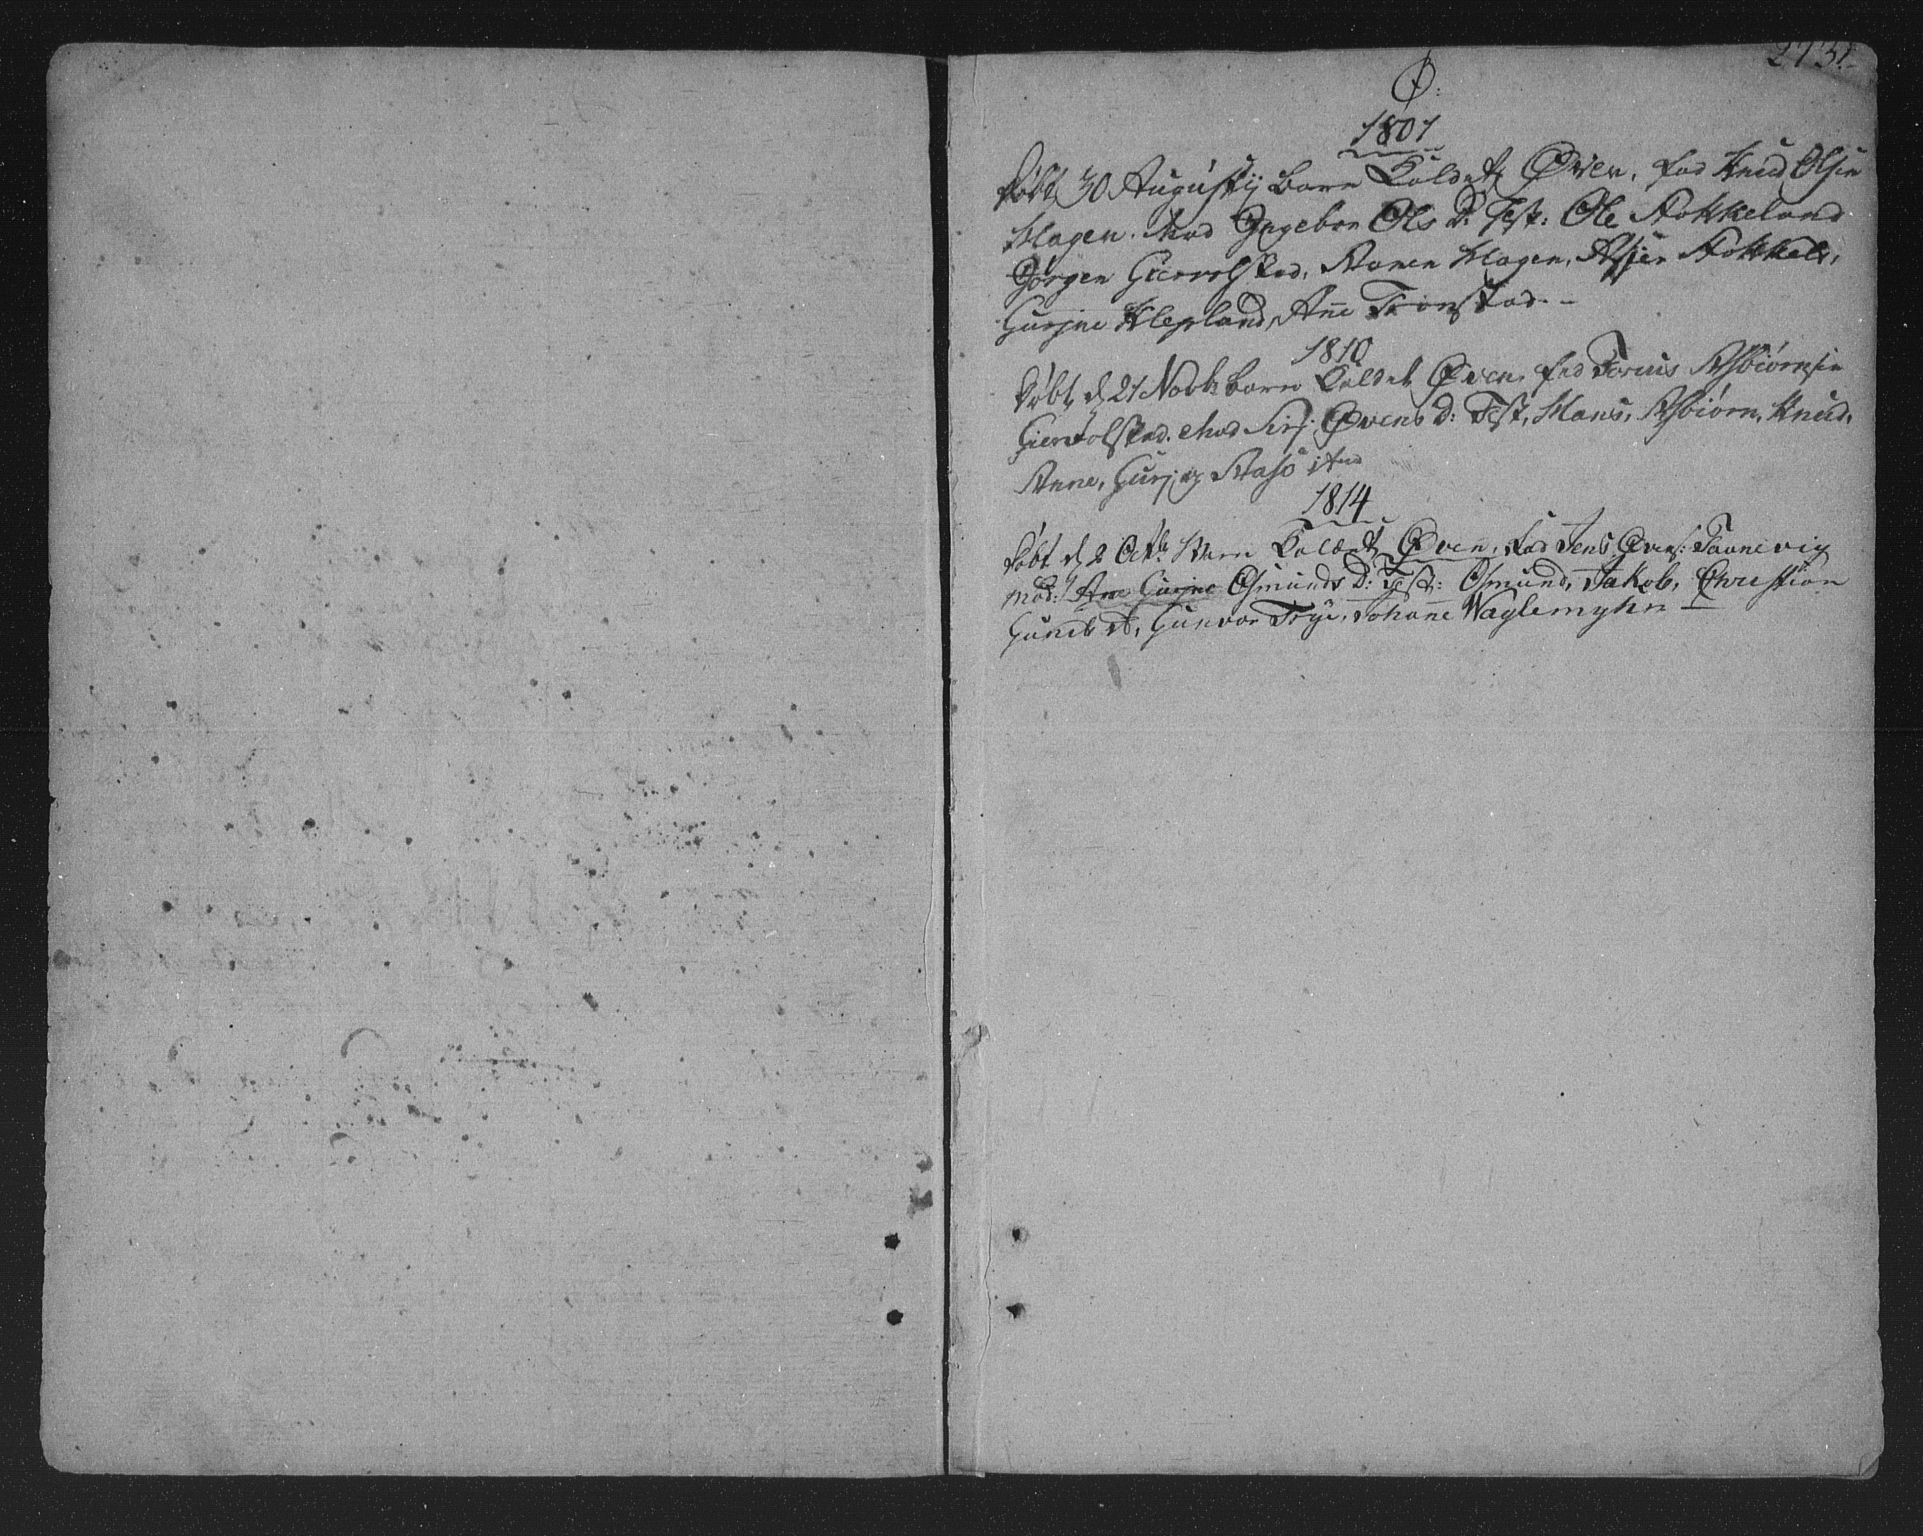 273.
Ø:
1801
Døbt 30 Augustij barn Kaldet Øven, fad Knud Olsen
Hagen. Mod Ingebor Ols D: Test: Ole Stokkeland
Jørgen Giervolstad, Maren Hagen, Asjer Stokkel,
Gurjne Klepland, Ane Tronstad.
1810
Døbt d 21 Novb: barn Kaldet Øven, fad Torius Asbiørnsen
Giervolstad. Mod Sirj Øvens D: Test, Hans, Asbiørn, Knud,
Anne, Gurj og Aase
1814
Døbt d 2 Octb: Barn Kaldet Øven, fad Jens Øvens: Taanevig
Mod: Ane Gurjne Osmunds D: Test: Osmund, Jakob, Christian
Gunvor Trye, Johanne Waglemyhr